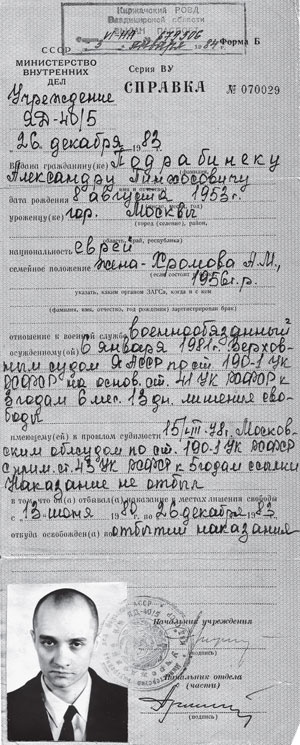 Киржачский РОВД
Владимирской области
VI-НА 679306
января 1984
Форма Б
СССР
МИНИСТЕРСТВО
ВНУТРЕННИХ
ДЕЛ
Серия ВУ
СПРАВКА
№ 070029
Учреждение
ЯД-40/5
26 декабря 1983
Выдана гражданину(ке) Подрабинеку
Александру Пинхосовичу
дата рождения 8 августа 1953г.
уроженцу(ке) гор. Москвы
(город (селение), район,
область, край, республика)
национальность еврей
семейное положение жена-Хромова А.М.,
(если состоит
1956г.р.
указать, каким органом ЗАГСа, когда и с кем
(фамилия, имя, отчество, год рождения) зарегистрирован брак)
отношение к военной службе военнообязанный
осужденному(ой) 6 января 1981г. Верхов-
ным судом ЯАССР по ст. 190-1 УК
РСФСР на основ. ст. 41 УК РСФСР к
3 годам 6 мес. 13 дн. лишения сво-
боды
имеющему(ей) в прошлом судимости 15/VIII-78г. Москов-
ским облсудом по ст. 190-1 УК РСФСР
с прим. ст. 43 УК РСФСР к 5 годам ссылки
Наказание не отбыл
в том что он(а) отбывал(а) наказание в местах лишения свободы
с 13 июня 1980 г. по 26 декабря 1983
откуда освобожден(а) по отбытии наказания
Начальник учреждения
(подпись)
Начальник отдела
(части)
(подпись)